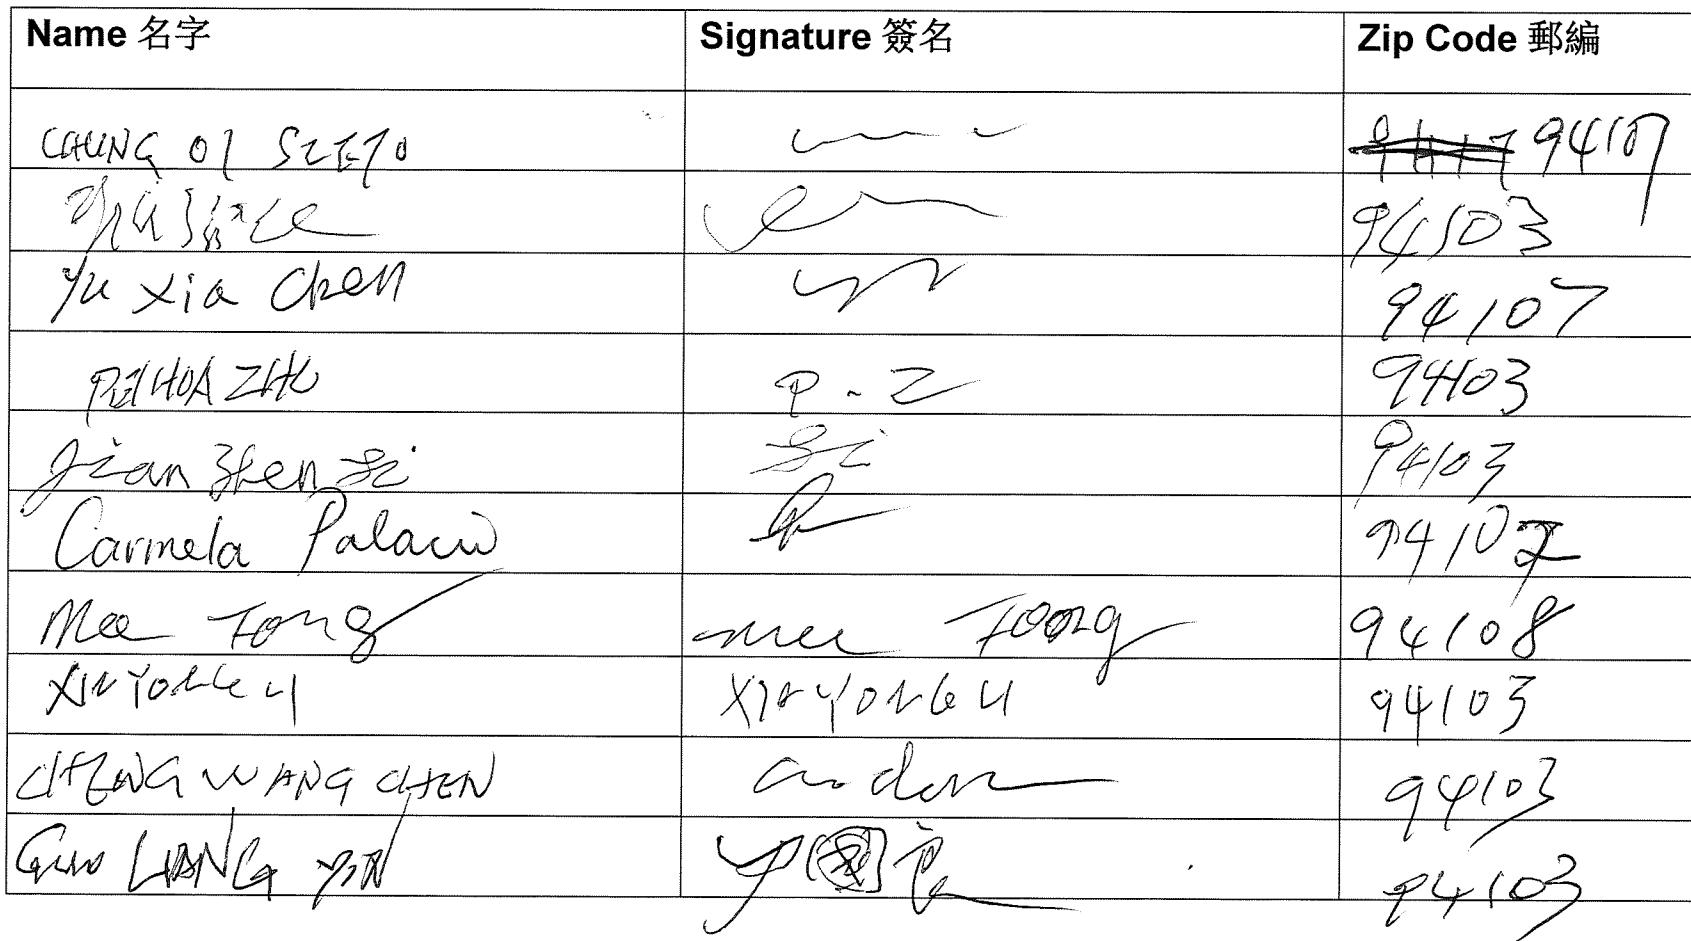 Name 名字 Signature 簽名 Zip Code 郵編
CHUNG OI SZETO 94107
94103
Yu Xia Chen 94107
PEIHUA ZHU P.Z 94103
Jian Zhen 94103
Carmela Palacio 94107
Mee Tong mee Toong 94108
XIN YONG LI XIN YONG LI 94103
CHENG WANG CHEN 94103
GUO LIANG YIN 尹國良 94103